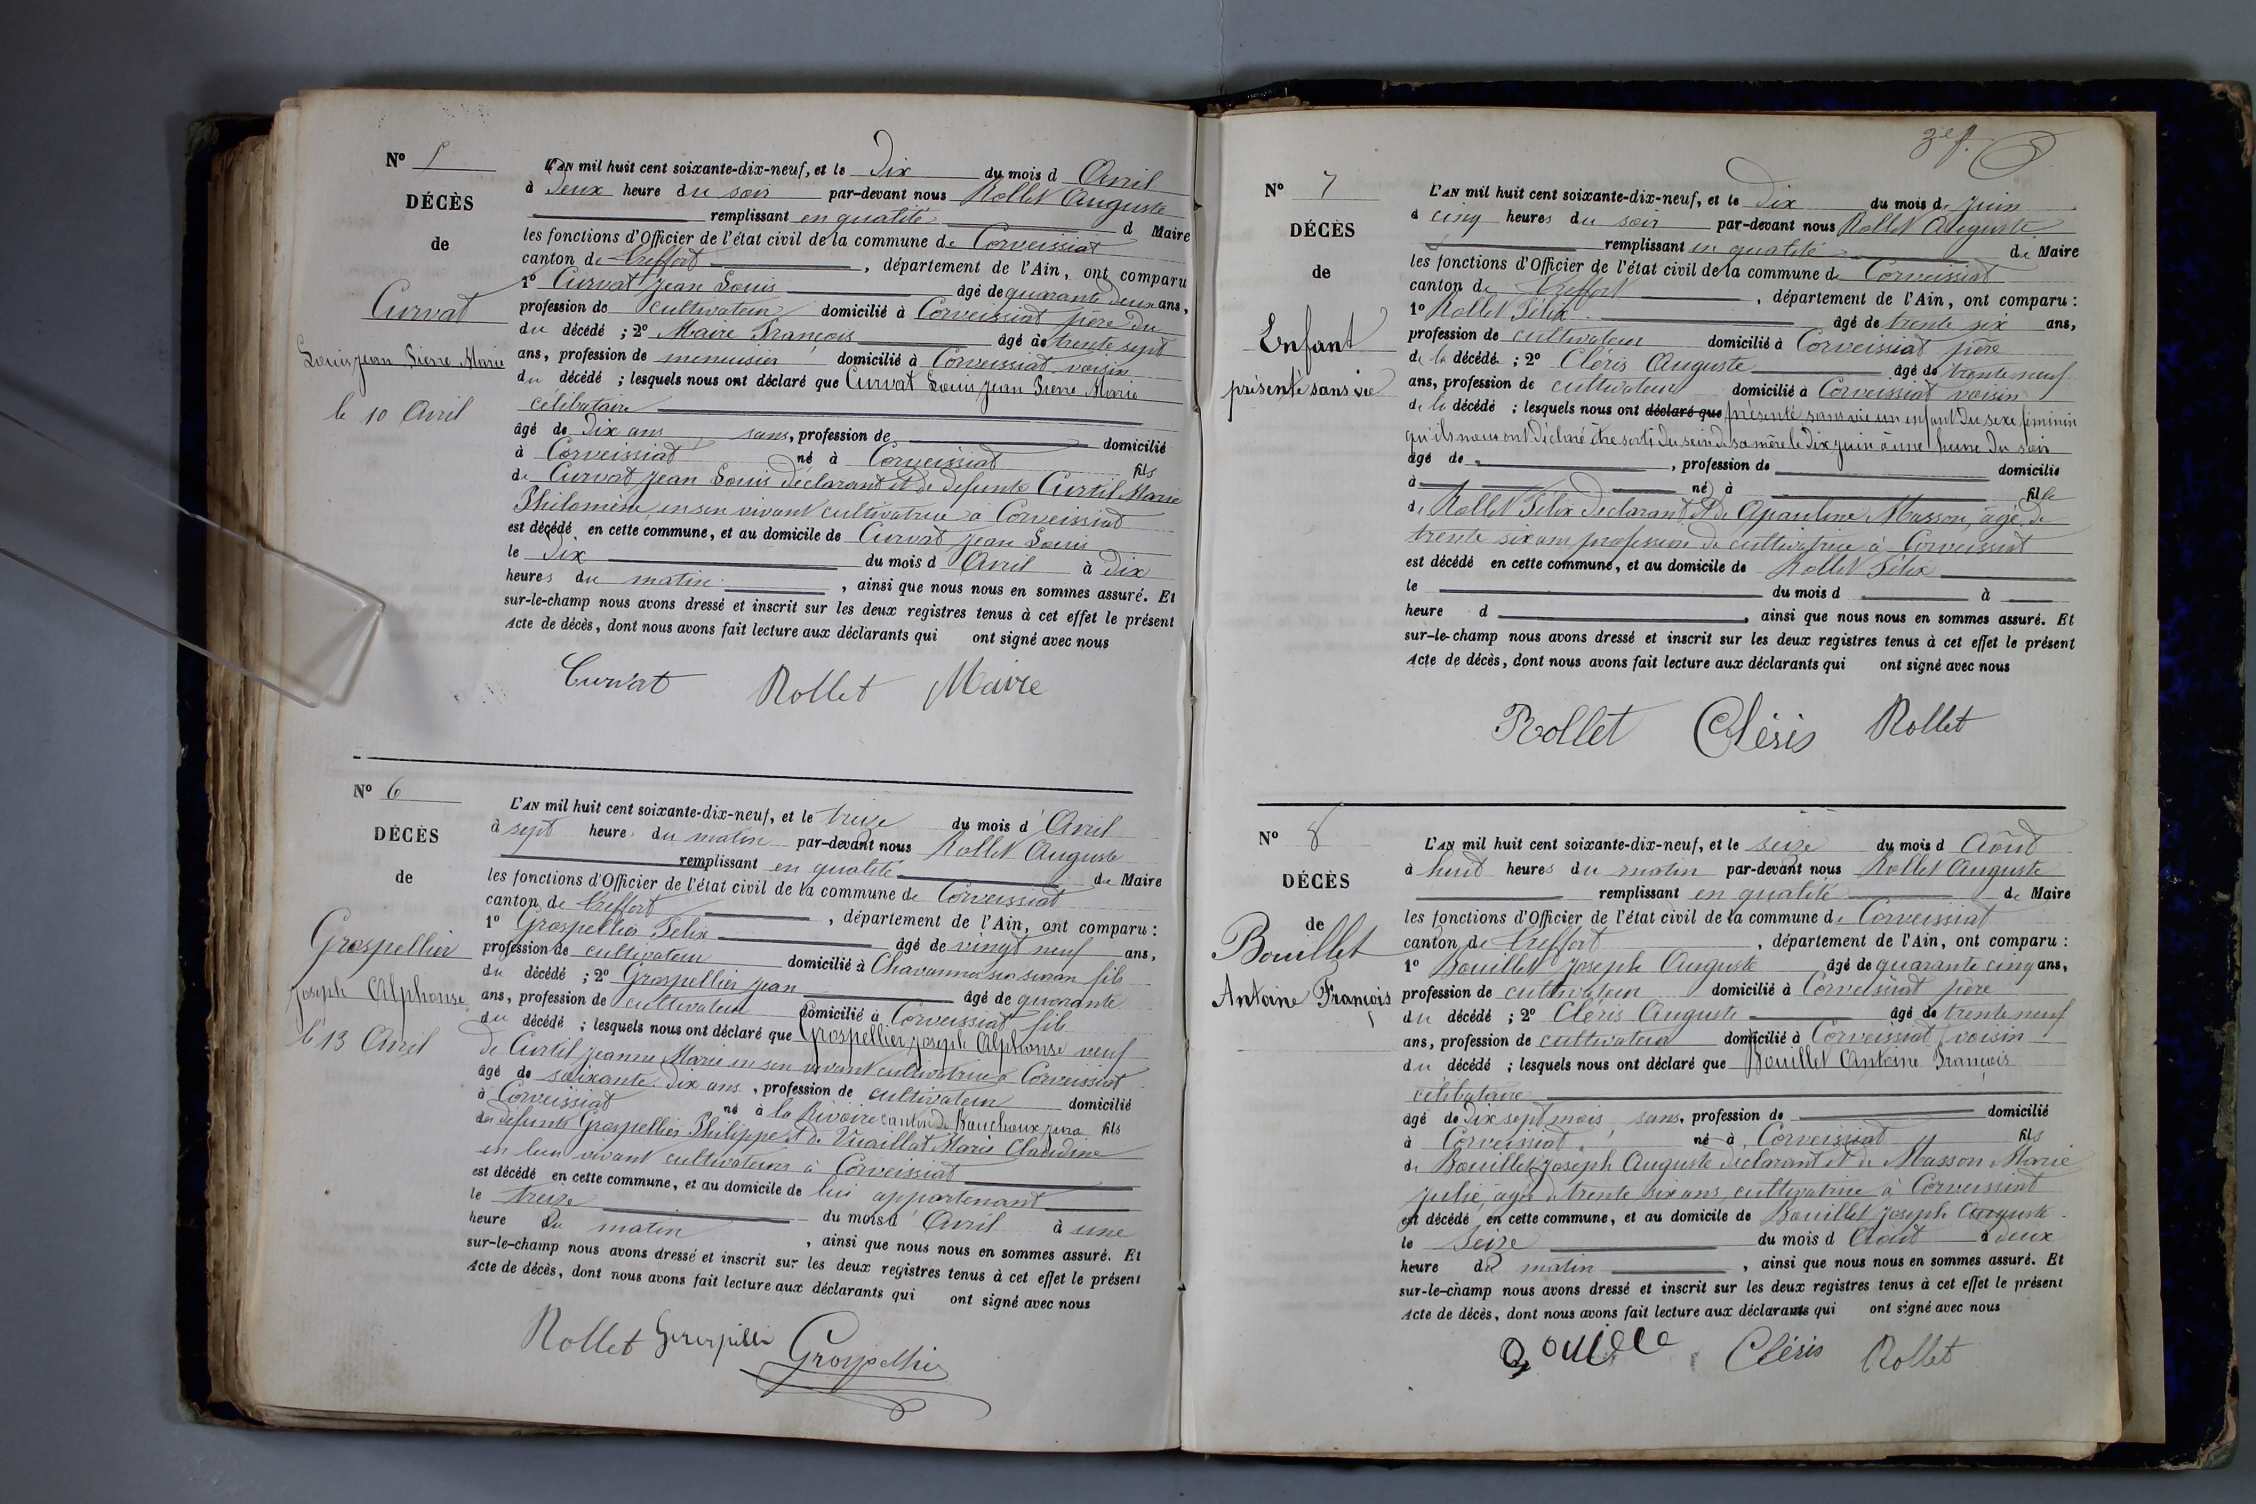 N° 5
DÉCÈS
de
Curvat
Louis Jean Pierre Marie
le 10 Avril
L'AN mil huit cent soixante-dix-neuf, et le Dix du mois d Avril
à Deux heure du soir par-devant nous Rollet Auguste
remplissant en qualité d Maire
les fonctions d'Officier de l'état civil de la commune de Corveissiat
canton de Treffort , département de l'Ain, ont comparu
1° Curvat Jean Louis âgé de quarante deux ans,
profession de cultivateur domicilié à Corveissiat père du
du décédé ; 2° Maire François âgé de trente sept
ans, profession de menuisier domicilié à Corveissiat voisin
du décédé ; lesquels nous ont déclaré que Curvat Louis Jean Pierre Marie
célibataire
âgé de Dix ans sans, profession de domicilié
à Corveissiat né à Corveissiat fils
de Curvat Jean Louis déclarant et de defunte Curtil Marie
Philomène en son vivant cultivatrice à Corveissiat
est décédé en cette commune, et au domicile de Curvat Jean Louis
le Dix du mois d Avril à Dix
heures du matin , ainsi que nous nous en sommes assuré. Et
sur-le-champ nous avons dressé et inscrit sur les deux registres tenus à cet effet le présent
Acte de décès, dont nous avons fait lecture aux déclarants qui ont signé avec nous
Curvat Rollet Maire
N° 6
DÉCÈS
de
Grospellier
Joseph Alphonse
le 13 Avril
L'AN mil huit cent soixante-dix-neuf, et le treize du mois d' Avril
à sept heure du matin par-devant nous Rollet Auguste
remplissant en qualité de Maire
les fonctions d'Officier de l'état civil de la commune de Corveissiat
canton de Treffort , département de l'Ain, ont comparu :
1° Grospellier Félix âgé de vingt neuf ans,
profession de cultivateur domicilié à Chavannes sur suran fils
du décédé ; 2° Grospellier Jean âgé de quarante
ans, profession de cultivateur domicilié à Corveissiat fils
du décédé ; lesquels nous ont déclaré que Grospellier Joseph Alphonse veuf
de Curtil Jeanne Marie en son vivant cultivatrice à Corveissiat
âgé de soixante dix ans , profession de cultivateur domicilié
à Corveissiat né à la Rivoire canton de Bouchoux jura fils
des défunts Grospellier Philippe et de Vuaillat Marie Claudine
en leur vivant cultivateurs à Corveissiat
est décédé en cette commune, et au domicile de lui appartenant
le treize du mois d' Avril à une
heure du matin , ainsi que nous nous en sommes assuré. Et
sur-le-champ nous avons dressé et inscrit sur les deux registres tenus à cet effet le présent
Acte de décès, dont nous avons fait lecture aux déclarants qui ont signé avec nous
Rollet Grospellier
3e f.
N° 7
DÉCÈS
de
Enfant
présenté sans vie
L'AN mil huit cent soixante-dix-neuf, et le Dix du mois de juin
à cinq heures du soir par-devant nous Rollet Auguste
remplissant en qualité de Maire
les fonctions d'Officier de l'état civil de la commune de Corveissiat
canton de Treffort , département de l'Ain, ont comparu :
1° Rollet Félix âgé de trente six ans,
profession de cultivateur domicilié à Corveissiat père
de la décédé ; 2° Cléris Auguste âgé de trente neuf
ans, profession de cultivateur domicilié à Corveissiat voisin
de la décédé ; lesquels nous ont déclaré que présenté sans vie un enfant du sexe féminin
qu'ils nous ont déclaré être sorti du sein de sa mère le Dix juin à une heure du soir
âgé de , profession de domicilié
à né à fille
de Rollet Félix Déclarant et de Apauline Masson, âgé de
trente six ans profession de cultivatrice à Corveissiat
est décédé en cette commune, et au domicile de Rollet Félix
le du mois d à
heure d , ainsi que nous nous en sommes assuré. Et
sur-le-champ nous avons dressé et inscrit sur les deux registres tenus à cet effet le présent
Acte de décès, dont nous avons fait lecture aux déclarants qui ont signé avec nous
Rollet Cléris Rollet
N° 8
DÉCÈS
de
Bouillet
Antoine François
L'AN mil huit cent soixante-dix-neuf, et le seize du mois d Août
à huit heures du matin par-devant nous Rollet Auguste
remplissant en qualité de Maire
les fonctions d'Officier de l'état civil de la commune de Corveissiat
canton de Treffort , département de l'Ain, ont comparu :
1° Bouillet Joseph Auguste âgé de quarante cinq ans,
profession de cultivateur domicilié à Corveissiat père
du décédé ; 2° Cléris Auguste âgé de trente neuf
ans, profession de cultivateur domicilié à Corveissiat voisin
du décédé ; lesquels nous ont déclaré que Bouillet Antoine François
célibataire
âgé de Dix sept mois sans, profession de domicilié
à Corveissiat né à Corveissiat fils
de Bouillet Joseph Auguste déclarant et de Masson Marie
Julie, âgée de trente six ans, cultivatrice à Corveissiat
est décédé en cette commune, et au domicile de Bouillet Joseph Auguste
le seize du mois d Août à deux
heure du matin , ainsi que nous nous en sommes assuré. Et
sur-le-champ nous avons dressé et inscrit sur les deux registres tenus à cet effet le présent
Acte de décès, dont nous avons fait lecture aux déclarants qui ont signé avec nous
Cléris Rollet